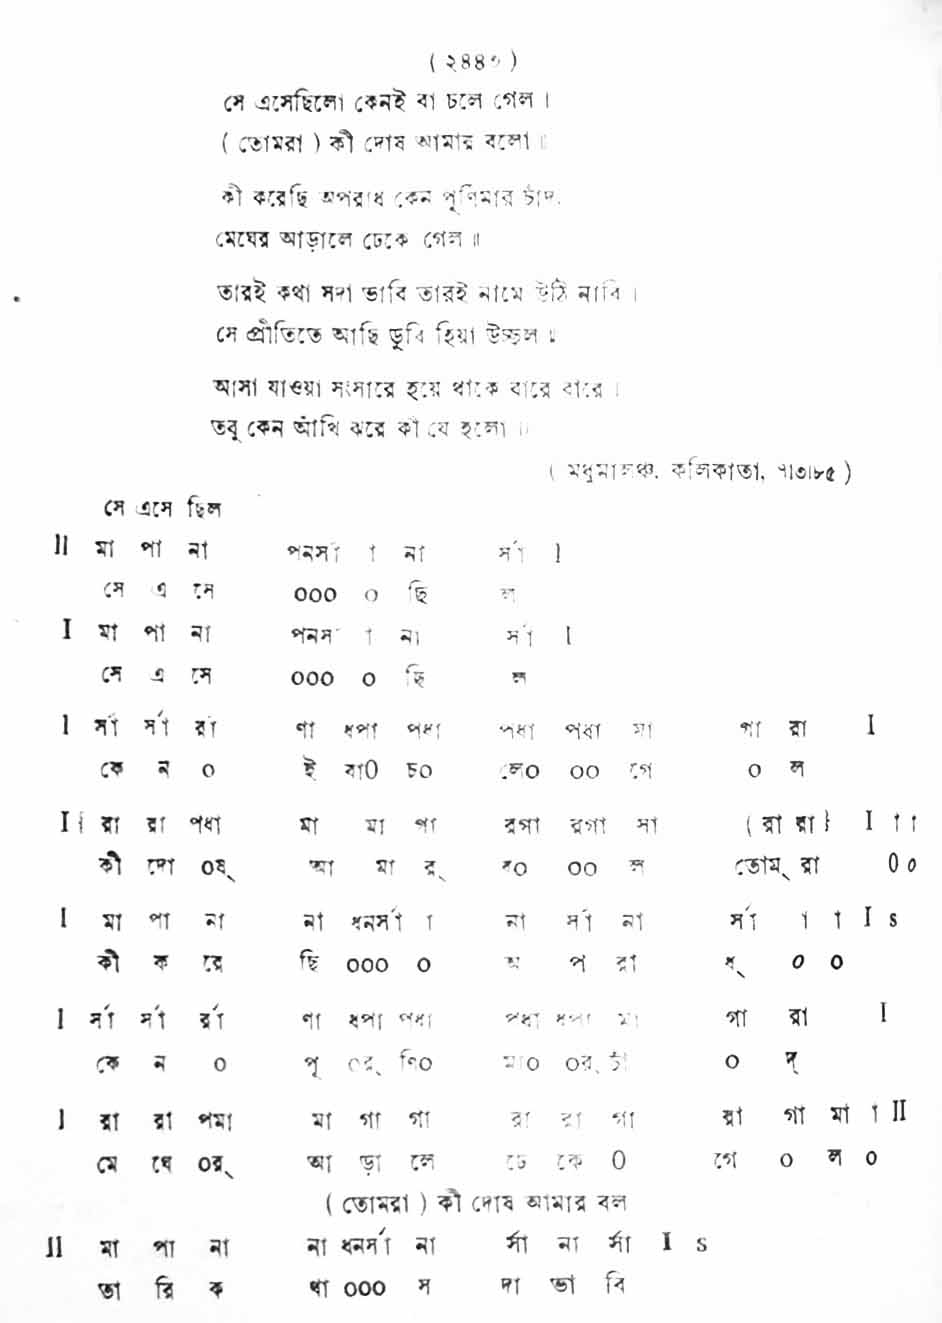 সে এসেছিলো কেনই বা চলে গেল ।
( তোমরা ) কী দোষ আমার বলো ॥
কী করেছি অপরাধ কেন পূর্ণিমার চাঁদ
মেঘের আড়ালে ঢেকে গেল ॥
তারই কথা সদা ভাবি তারই নামে উঠি নাবি ।
সে প্রীতিতে আছি ডুবি হিয়া উচ্ছল ॥
আসা যাওয়া সংসারে হয়ে থাকে বারে বারে ।
তবু কেন আঁখি ঝরে কী যে হলো ॥
( মধুমালঞ্চ, কলিকাতা, ৭।৩।৮৫ )
সে এসে ছিল
II মা পা না পনর্সা া না র্সা I
সে এ সে ০০০ ০ ছি ল
I মা পা না পনর্সা া না র্সা I
সে এ সে ০০০ ০ ছি ল
I র্সা র্সা র্রা ণা ধপা পধা পধা পধা মা গা রা I
কে ন ০ ই বা০ চ০ লে০ ০০ গে ০ ল
I { রা রা পধা মা মা পা রগা রগা সা ( রা রা } I া া
কী দো ০ষ্ আ মা র্ ব০ ০০ ল তোম্ রা ০০
I মা পা না না ধনর্সা া না র্সা না র্সা া া I s
কী ক রে ছি ০০০ ০ অ প রা ধ্ ০ ০
I র্সা র্সা র্রা ণা ধপা পধা পধা ধপা মা গা রা I
কে ন ০ পূ ০র্ ণি০ মা০ ০র্ চাঁ ০ দ্
I রা রা পমা মা গা গা রা রা গা রা গা মা া II
মে ঘে ০র্ আ ড়া লে ঢে কে ০ গে ০ ল ০
( তোমরা ) কী দোষ আমার বল
II মা পা না না ধনর্সা না র্সা না র্সা I s
তা রি ক থা ০০০ স দা ভা বি